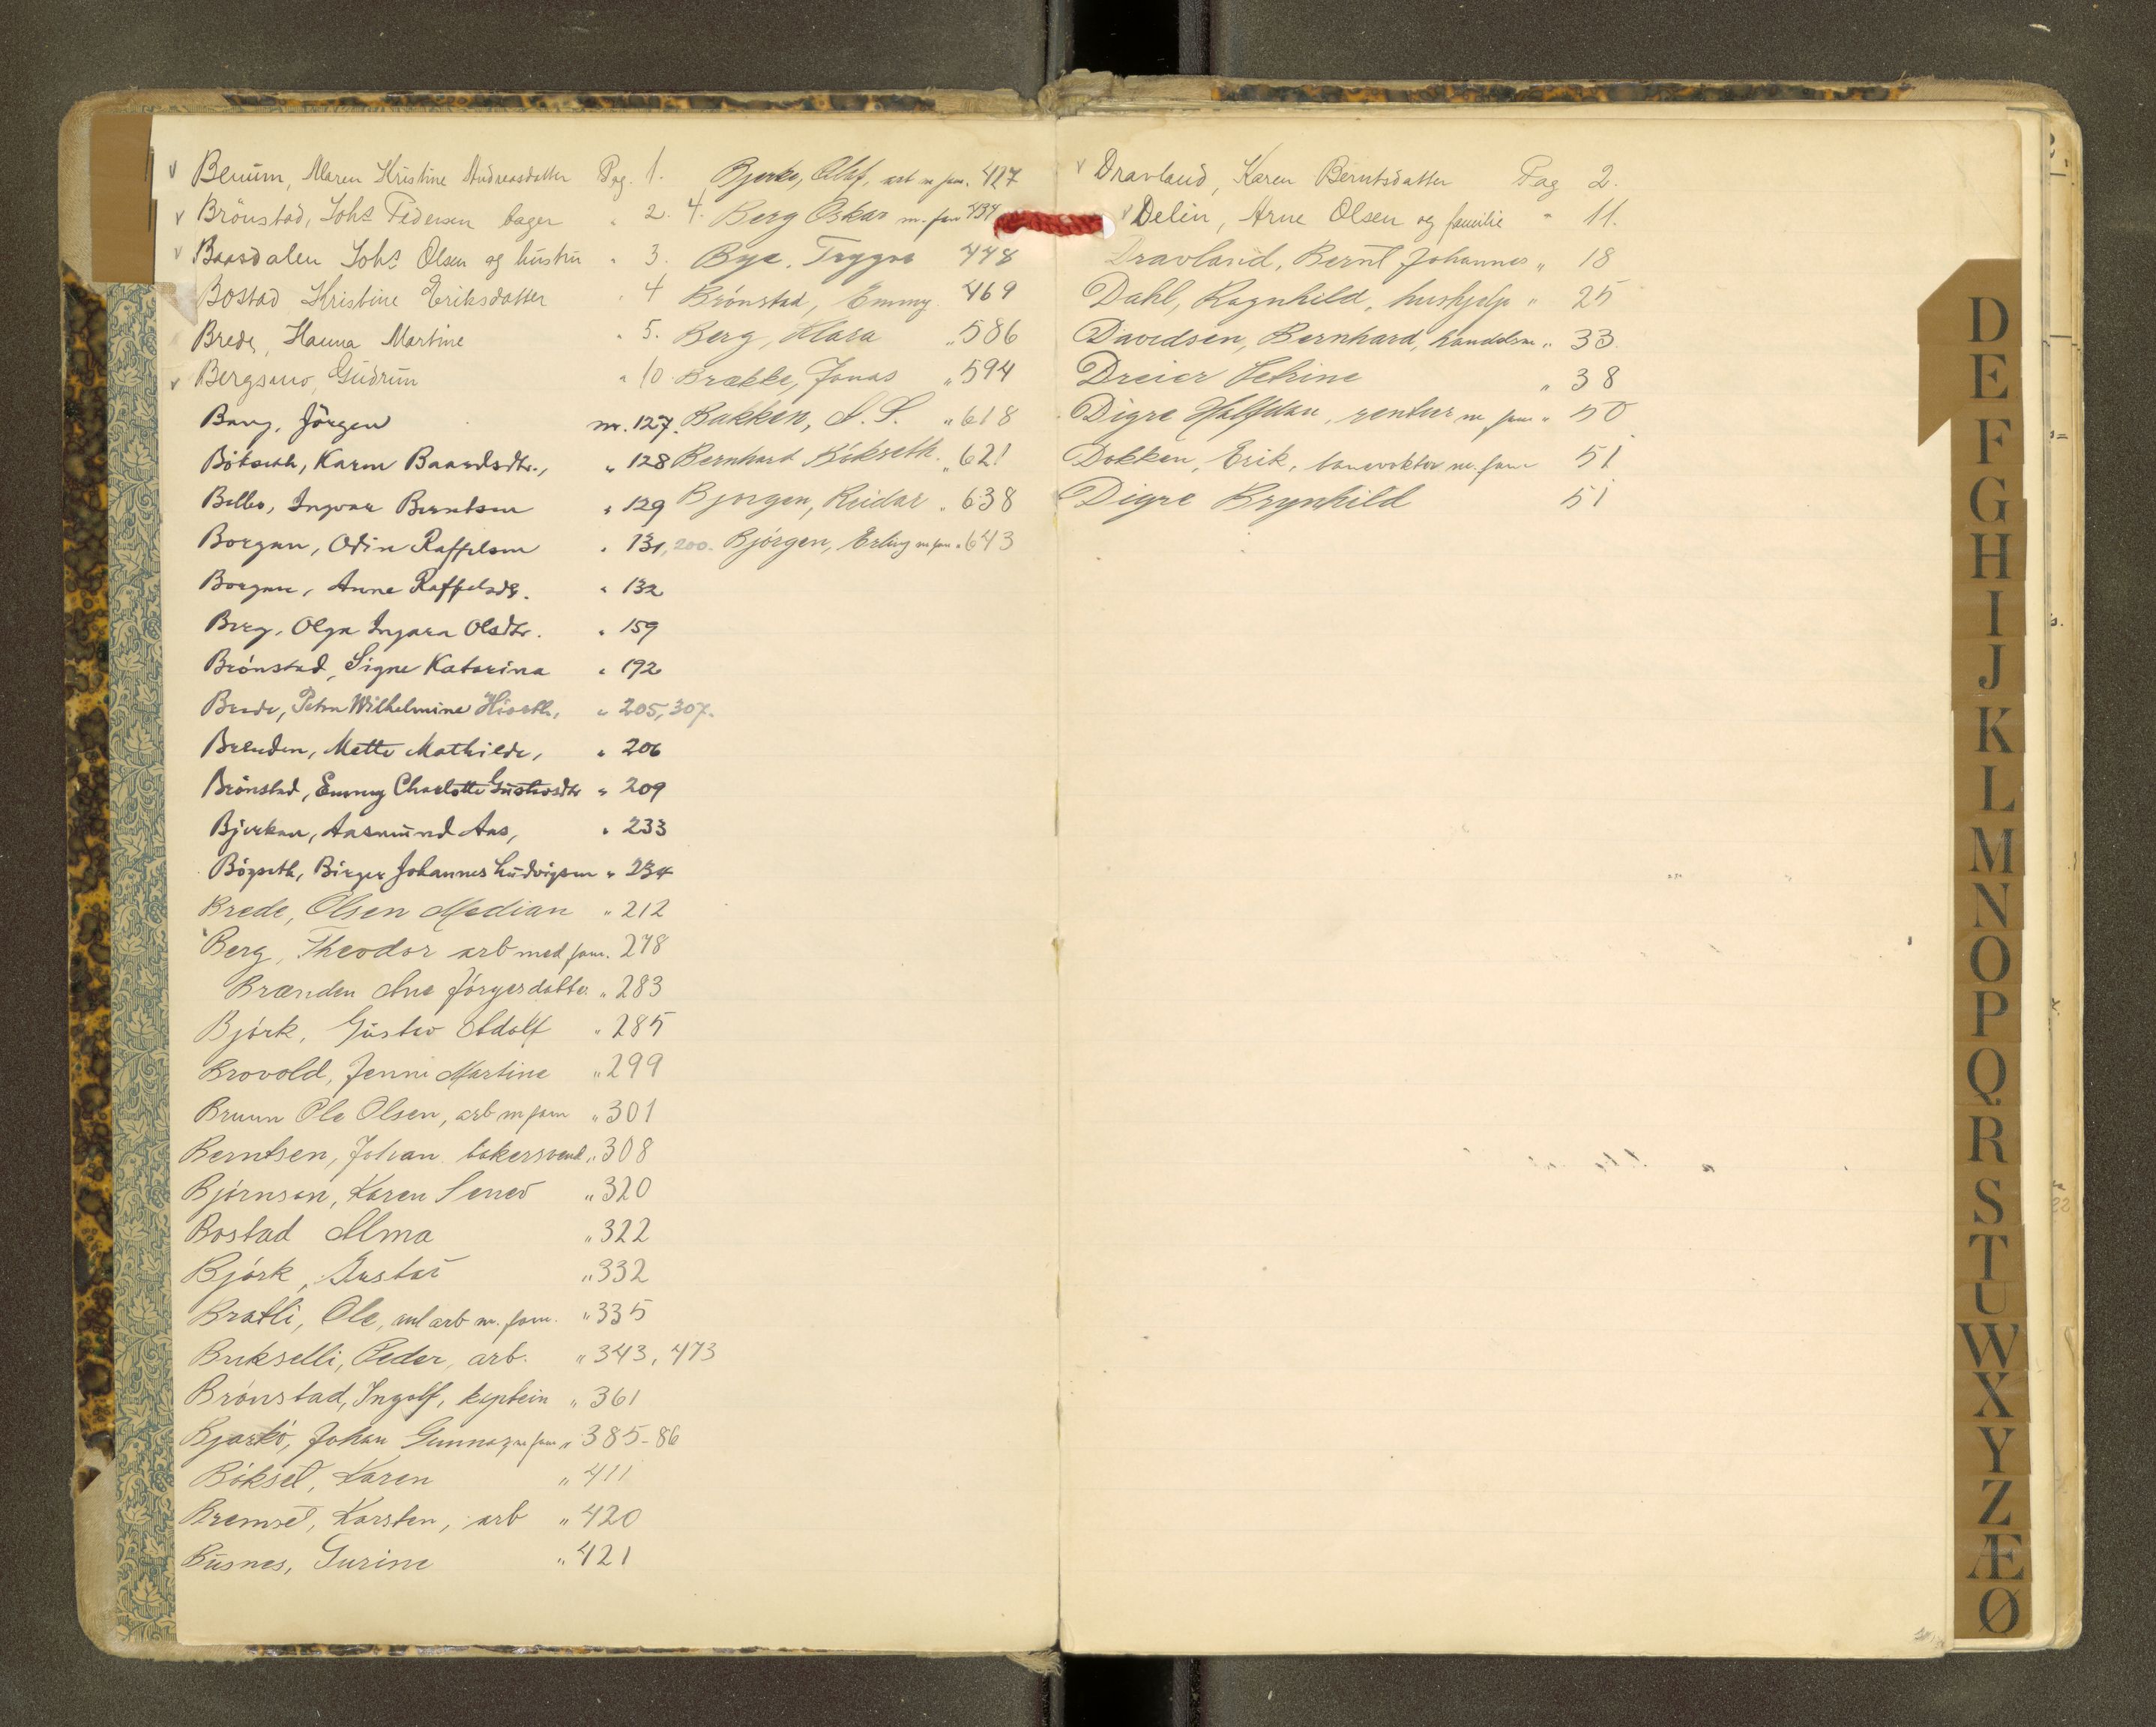 v Benum, Maren Kristine Andreasdatter Pag. 1.
v Brönstad, Johs Pedersen bager " 2. 4.
v Baasdalen Johs Olsen og hustru " 3.
Bostad Kristine Eriksdatter " 4
Brede, Hanna Martine " 5.
v Bergsmo, Gudrun " 10
Bang, Jörgen nr. 127.
Bökseth, Karen Baardsdtr., " 128
Belbo, Ingvar Berntsen " 129
Borgen, Odin Raffelsen " 131, 200.
Borgen, Anne Raffelsdtr. " 132
Berg, Olga Ingara Olsdtr. " 159
Brönstad, Signe Katarina " 192
Brede, Petra Wilhelmine " 205, 307.
Brenden, Mette Mathilde, " 206
Brönstad, Emmy Charlotte Gustavsdtr " 209
Bjerkan, Aasmund Aas, " 233
Bögseth, Birger Johannes Ludvigsen " 234
Brede, Olsen Median " 212
Berg, Theodor arb med fam. 278
Brænden Ane Jörgesdatter " 283
Björk, Gustav Adolf " 285
Brovold, Jenni Martine " 299
Bruun Ole Olsen, arb m fam " 301
Berntsen, Johan bakersvend " 308
Björnson, Karen " 320
Bostad Alma " 322
Björk, Gustav " 332
Bratli, Ole, arb m. fam. " 335
Bukselli, Peder, arb. " 343, 473
Brönstad, Ingolf, kaptein " 361
Bjarkö, Johan Gunnar, m fam " 385-86
Bökset, Karen " 411
Bremset, Karsten, arb " 420
Busnes, Gurine " 421
Bjerke, Olaf, arb m fam. 427
Berg Oskar m. fam 434
Bye, Trygve 448
Brönstad, Emmy 469
Berg, Klara " 586
Brække, Jonas " 594
Bakken, S. S. " 618
Bernhard Bökseth. " 621
Bjorgen, Reidar " 638
Bjórgen, Erling m fam " 643
v Dravland, Karen Berntsdatter Pag 2.
v Delin, Arne Olsen og familie " 11.
Dravland, Bernt Johannes " 18
Dahl, Ragnhild, hushjelp " 25
Davidsen, Bernhard, handelsm " 33.
Dreier Petrine " 38
Digre Halfdan, rentier m fam " 50
Dokken, Erik, banevokter m. fam 51
Digre Brynhild 51
D
E
F
G
H
I
J
K
L
M
N
O
P
Q
R
S
T
U
W
X
Y
Z
Æ
Ø